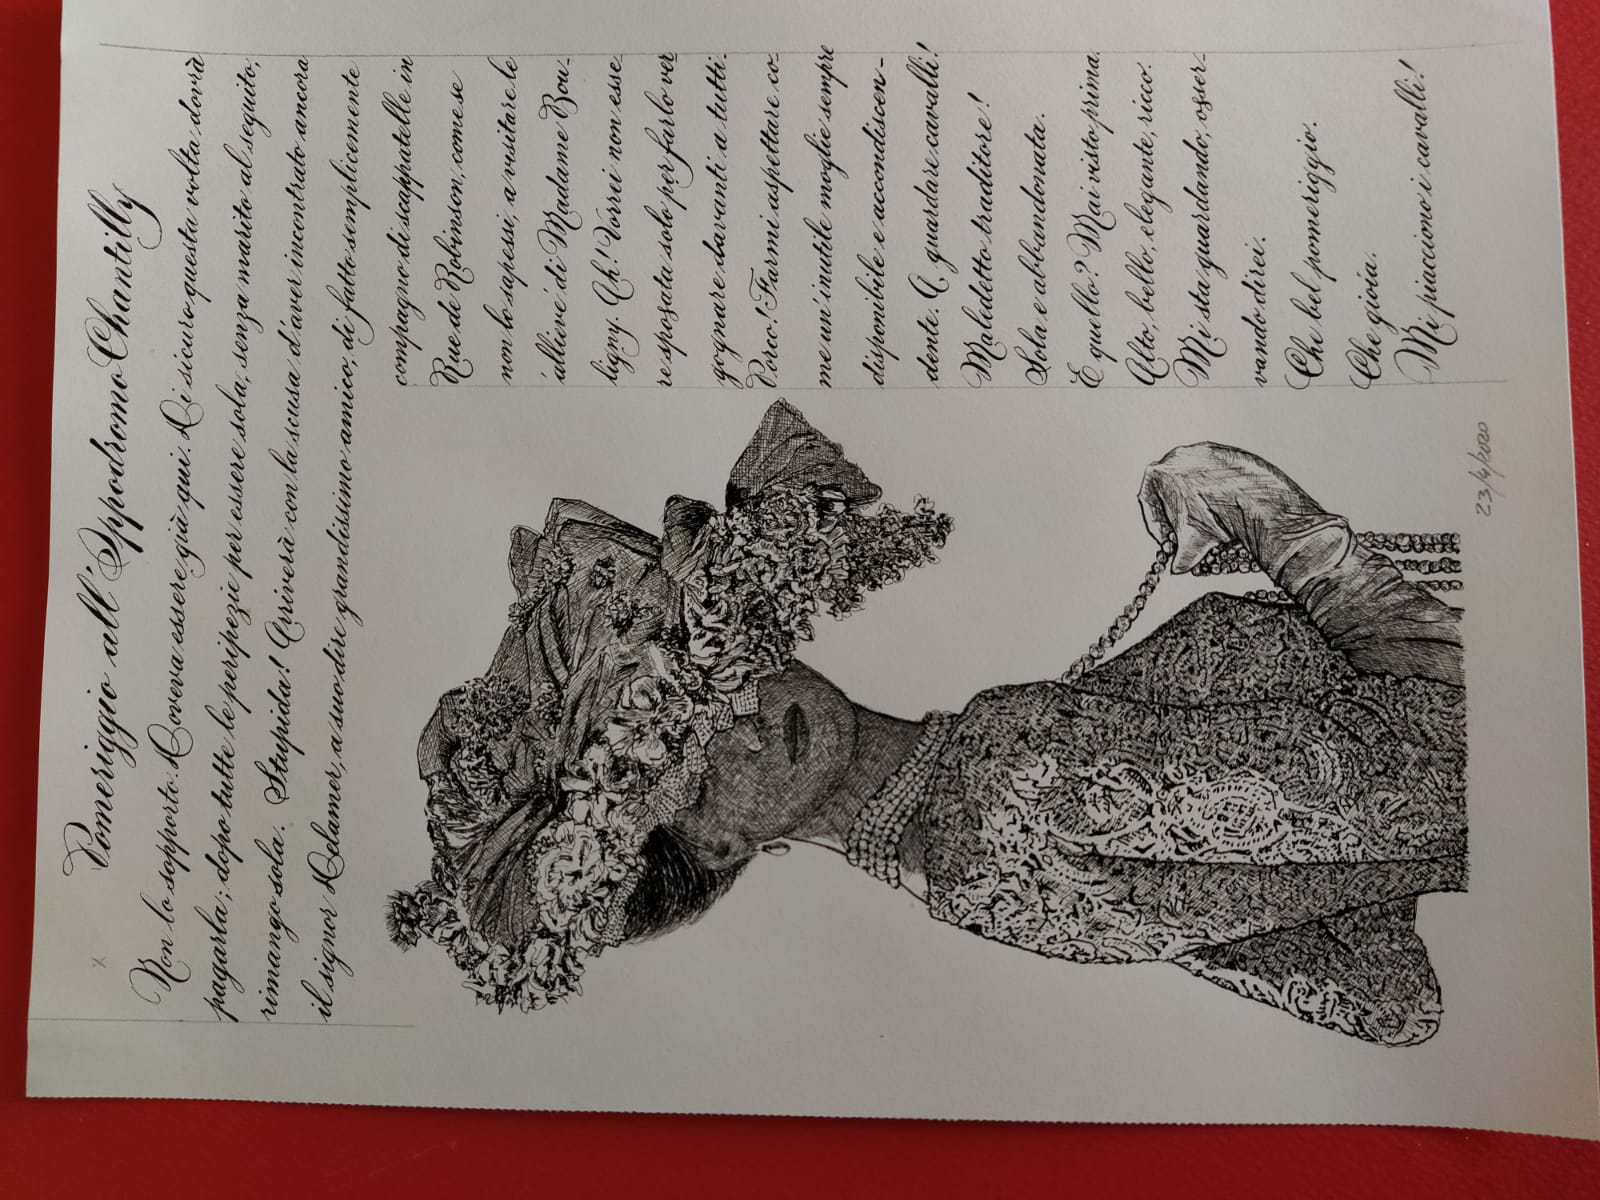 Pomeriggio all'Ippodromo Chantilly
Non lo sopporto. Doveva essere già qui. Di sicuro questa volta dovrà
pagarla; dopo tutte le peripezie per essere sola, senza marito al seguito,
rimango sola. Stupida! Arriverà con la scusa d'aver incontrato ancora
il signor Delamer, a suo dire grandissimo amico, di fatto semplicemente
compagno di scappatelle in
Rue de Robinson, come se
non lo sapessi, a visitare le
allieve di Madame Bou-
ligny. Ah! Vorrei non esse
re sposata solo per farlo ver
gognare davanti a tutti.
Porco! Farmi aspettare co
me un'inutile moglie sempre
disponibile e accondiscen-
dente. A guardare cavalli!
Maledetto traditore!
Sola e abbandonata.
E quello? Mai visto prima.
Alto, bello, elegante, ricco.
Mi sta guardando, osser-
vando direi.
Che bel pomeriggio.
Che gioia.
Mi piacciono i cavalli!
23/4/2020